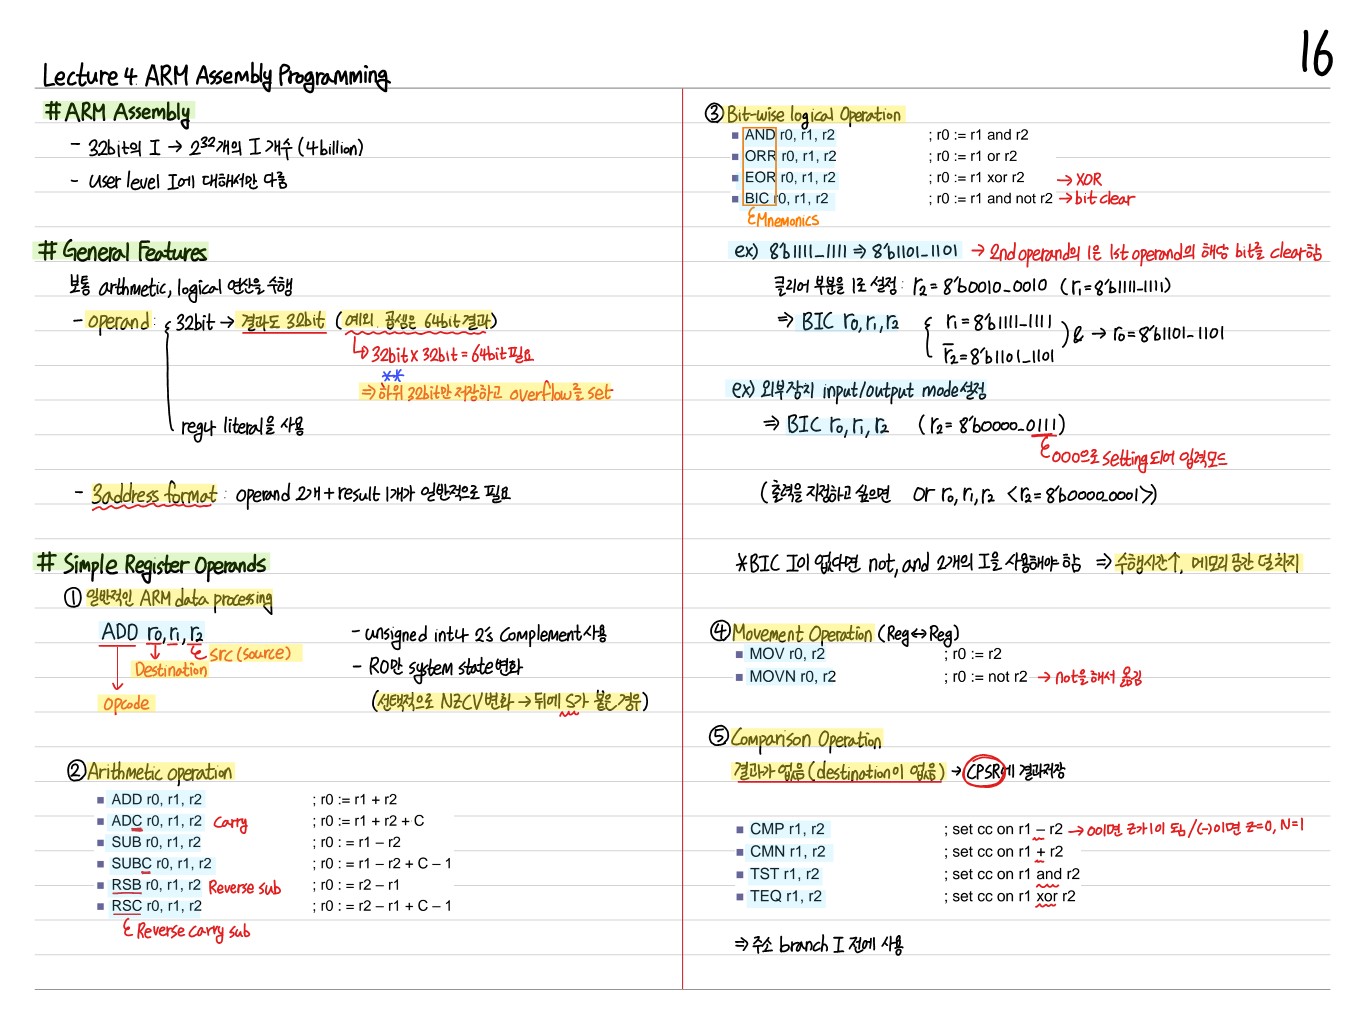 16
Lecture 4. ARM Assembly Programming
# ARM Assembly
- 32bit의 I → 2³²개의 I 개수 (4billion)
- User level I에 대해서만 다룸
# General Features
보통 arithmetic, logical 연산을 수행
- operand : 32bit → 결과도 32bit (예외. 곱셈은 64bit 결과)
↳ 32bit x 32bit = 64bit 필요
**
⇒ 하위 32bit만 저장하고 overflow를 set
reg나 literal을 사용
- 3address format : operand 2개 + result 1개가 일반적으로 필요
# Simple Register Operands
① 일반적인 ARM data processing
ADD r0, r1, r2
src (source)
Destination
opcode
- unsigned int나 2's Complement 사용
- R0만 system state 변화
(선택적으로 NZCV 변화 → 뒤에 S가 붙은 경우)
② Arithmetic operation
ADD r0, r1, r2 ; r0 := r1 + r2
ADC r0, r1, r2 Carry ; r0 := r1 + r2 + C
SUB r0, r1, r2 ; r0 := r1 – r2
SUBC r0, r1, r2 ; r0 : = r1 – r2 + C – 1
RSB r0, r1, r2 Reverse sub ; r0 : = r2 – r1
RSC r0, r1, r2 ; r0 : = r2 – r1 + C – 1
Reverse carry sub
③ Bit-wise logical Operation
AND r0, r1, r2 ; r0 := r1 and r2
ORR r0, r1, r2 ; r0 := r1 or r2
EOR r0, r1, r2 ; r0 := r1 xor r2 → XOR
BIC r0, r1, r2 ; r0 := r1 and not r2 → bit clear
Mnemonics
ex) 8'b1111_1111 ⇒ 8'b1101_1101 → 2nd operand의 1은 1st operand의 해당 bit를 clear함
클리어 부분을 1로 설정: r2 = 8'b0010_0010 (r1 = 8'b1111_1111)
⇒ BIC r0, r1, r2 { r1 = 8'b1111_1111
r̅2 = 8'b1101_1101 ) & → r0 = 8'b1101_1101
ex) 외부장치 input/output mode 설정
⇒ BIC r0, r1, r2 (r2 = 8'b0000_0111)
000으로 setting되어 입력모드
(출력을 지정하고 싶으면 or r0, r1, r2 <r2 = 8'b0000_0001>)
*BIC I이 없다면 not, and 2개의 I을 사용해야 함 ⇒ 수행시간↑, 메모리 공간 더 차지
④ Movement Operation (Reg↔Reg)
MOV r0, r2 ; r0 := r2
MOVN r0, r2 ; r0 := not r2 → not을 해서 옮김
⑤ Comparison Operation
결과가 없음 (destination이 없음) → CPSR에 결과저장
CMP r1, r2 ; set cc on r1 – r2 → 0이면 Z가 1이 됨 / (-)이면 Z=0, N=1
CMN r1, r2 ; set cc on r1 + r2
TST r1, r2 ; set cc on r1 and r2
TEQ r1, r2 ; set cc on r1 xor r2
⇒ 주소 branch I 전에 사용